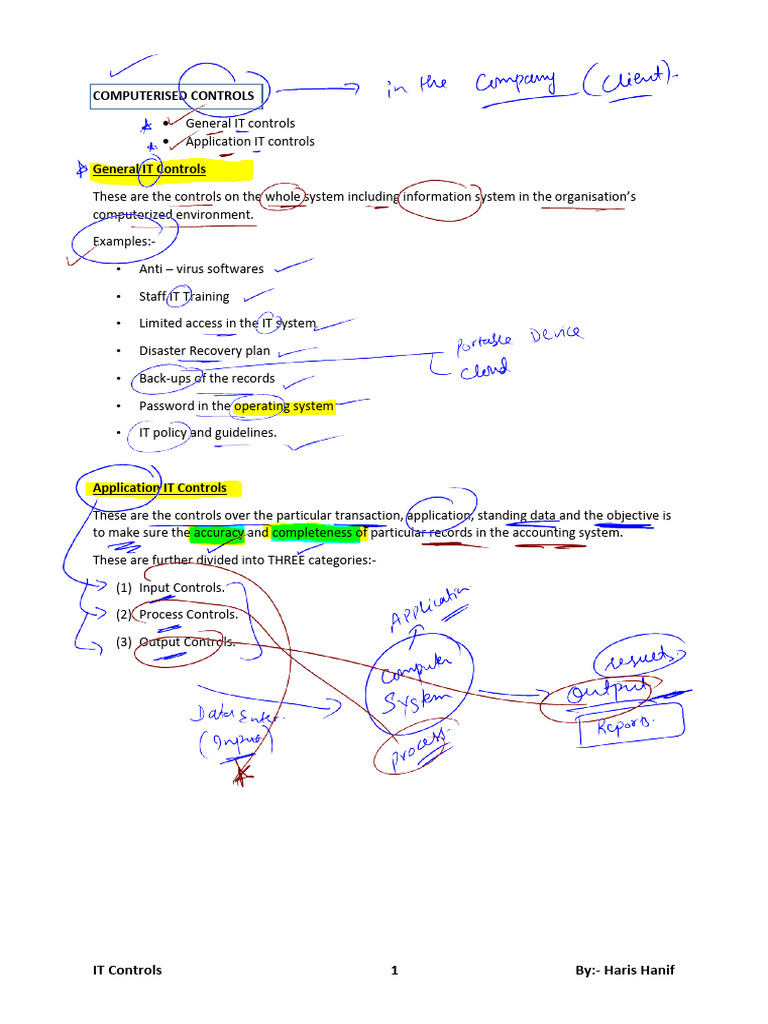 COMPUTERISED CONTROLS in the Company (Client)
• General IT controls
• Application IT controls
General IT Controls
These are the controls on the whole system including information system in the organisation's
computerized environment.
Examples:-
• Anti – virus softwares
• Staff IT Training
• Limited access in the IT system
• Disaster Recovery plan
Portable Device
• Back-ups of the records
Cloud
• Password in the operating system
• IT policy and guidelines.
Application IT Controls
These are the controls over the particular transaction, application, standing data and the objective is
to make sure the accuracy and completeness of particular records in the accounting system.
These are further divided into THREE categories:-
(1) Input Controls.
(2) Process Controls.
(3) Output Controls.
Application
Computer
System
results
Output
Data Enter.
(Input)
Process
Reports.
IT Controls 1 By:- Haris Hanif